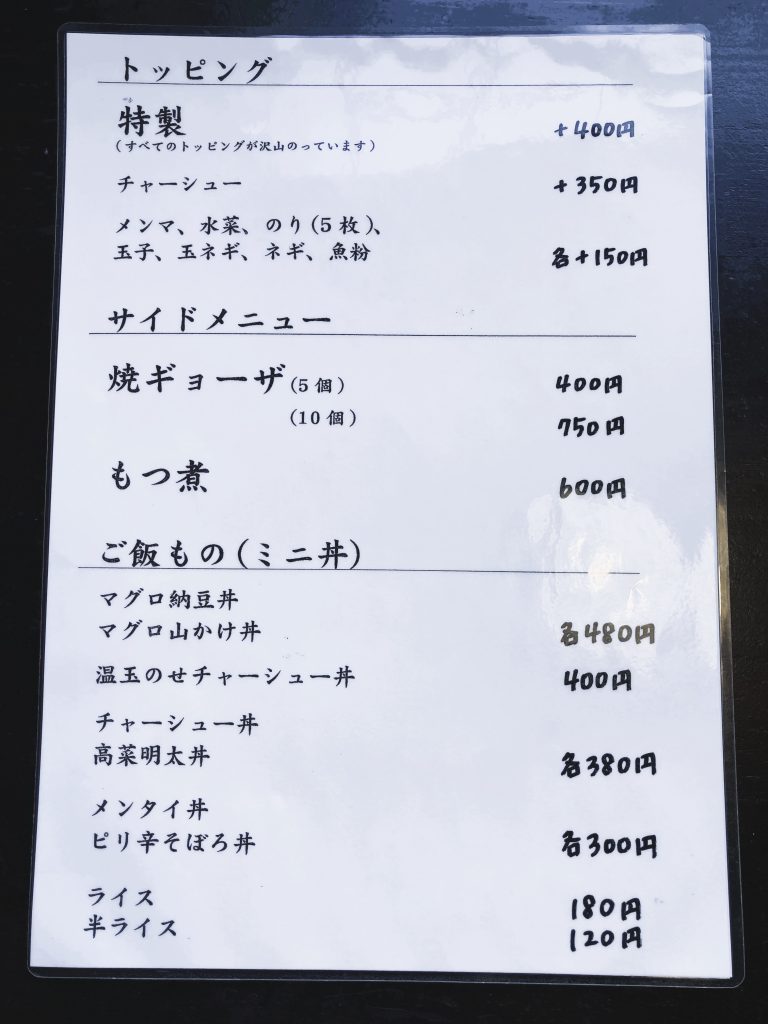 トッピング
特製 +400円
(すべてのトッピングが沢山のっています)
チャーシュー +350円
メンマ、水菜、のり(5枚)、
玉子、玉ネギ、ネギ、魚粉 各+150円
サイドメニュー
焼ギョーザ(5個) 400円
(10個) 750円
もつ煮 600円
ご飯もの(ミニ丼)
マグロ納豆丼
マグロ山かけ丼 各480円
温玉のせチャーシュー丼 400円
チャーシュー丼
高菜明太丼 各380円
メンタイ丼
ピリ辛そぼろ丼 各300円
ライス 180円
半ライス 120円